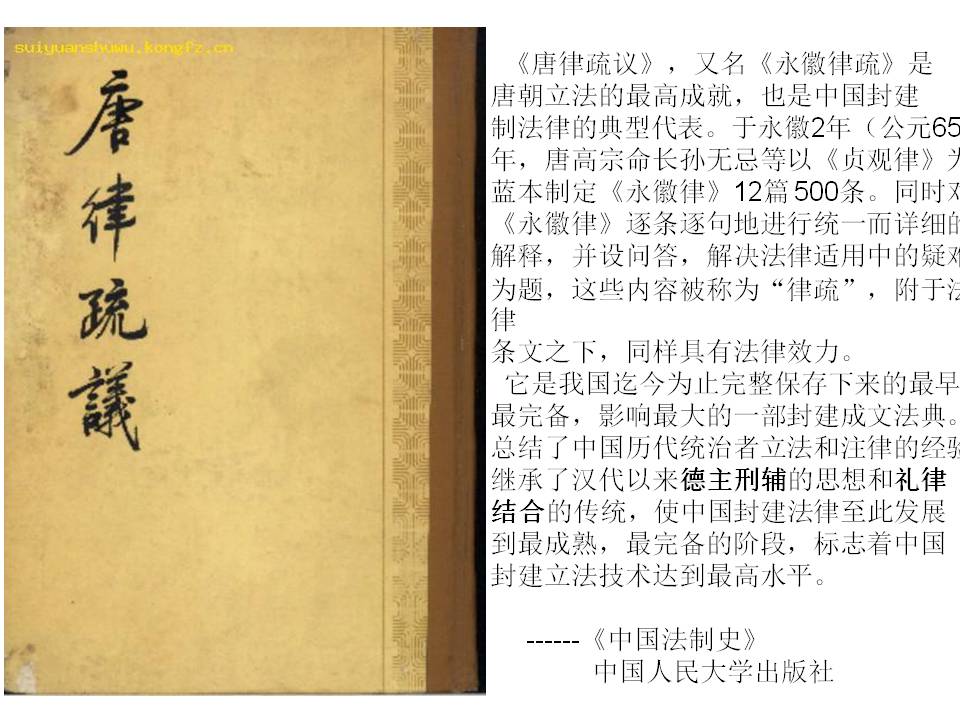 suiyuanshuwu.kongfz.cn
唐律疏議
《唐律疏议》，又名《永徽律疏》是
唐朝立法的最高成就，也是中国封建
制法律的典型代表。于永徽2年（公元65
年，唐高宗命长孙无忌等以《贞观律》为
蓝本制定《永徽律》12篇500条。同时对
《永徽律》逐条逐句地进行统一而详细的
解释，并设问答，解决法律适用中的疑难
为题，这些内容被称为“律疏”，附于法
律
条文之下，同样具有法律效力。
它是我国迄今为止完整保存下来的最早
最完备，影响最大的一部封建成文法典。
总结了中国历代统治者立法和注律的经验
继承了汉代以来德主刑辅的思想和礼律
结合的传统，使中国封建法律至此发展
到最成熟，最完备的阶段，标志着中国
封建立法技术达到最高水平。
------《中国法制史》
中国人民大学出版社